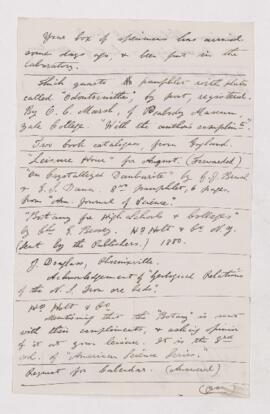 Your box of specimens has arrived
some days ago, & been put in the
laboratory.
Thick quarto pamphlet with plates
called "Odontornithes", by post, registered.
By O. C. Marsh, of Peabody Museum,
Yale College. "With the author's compliments".
Two book catalogues, from England.
"Leisure Hour" for August. (Forwarded)
"On Crystallized Danburite" by G. J. Brush
& E. S. Dana. 8vo pamphlet, 6 pages.
from "Am. Journal of Science".
"Botany for High Schools & Colleges"
by C. E. Bessey. Hy Holt & Co N. Y.
(Sent by the Publishers.) 1880.
J. Douglass, Phoenixville.
Acknowledgement of "Geological Relations
of the N. S. Iron ore beds."
Hy Holt & Co
Mentioning that the "Botany" is sent
with their compliments, & asking opinion
of it at your leisure. It is the 3rd
vol. of "American Science Series."
Request for Calendar. (Answered)
(Over)